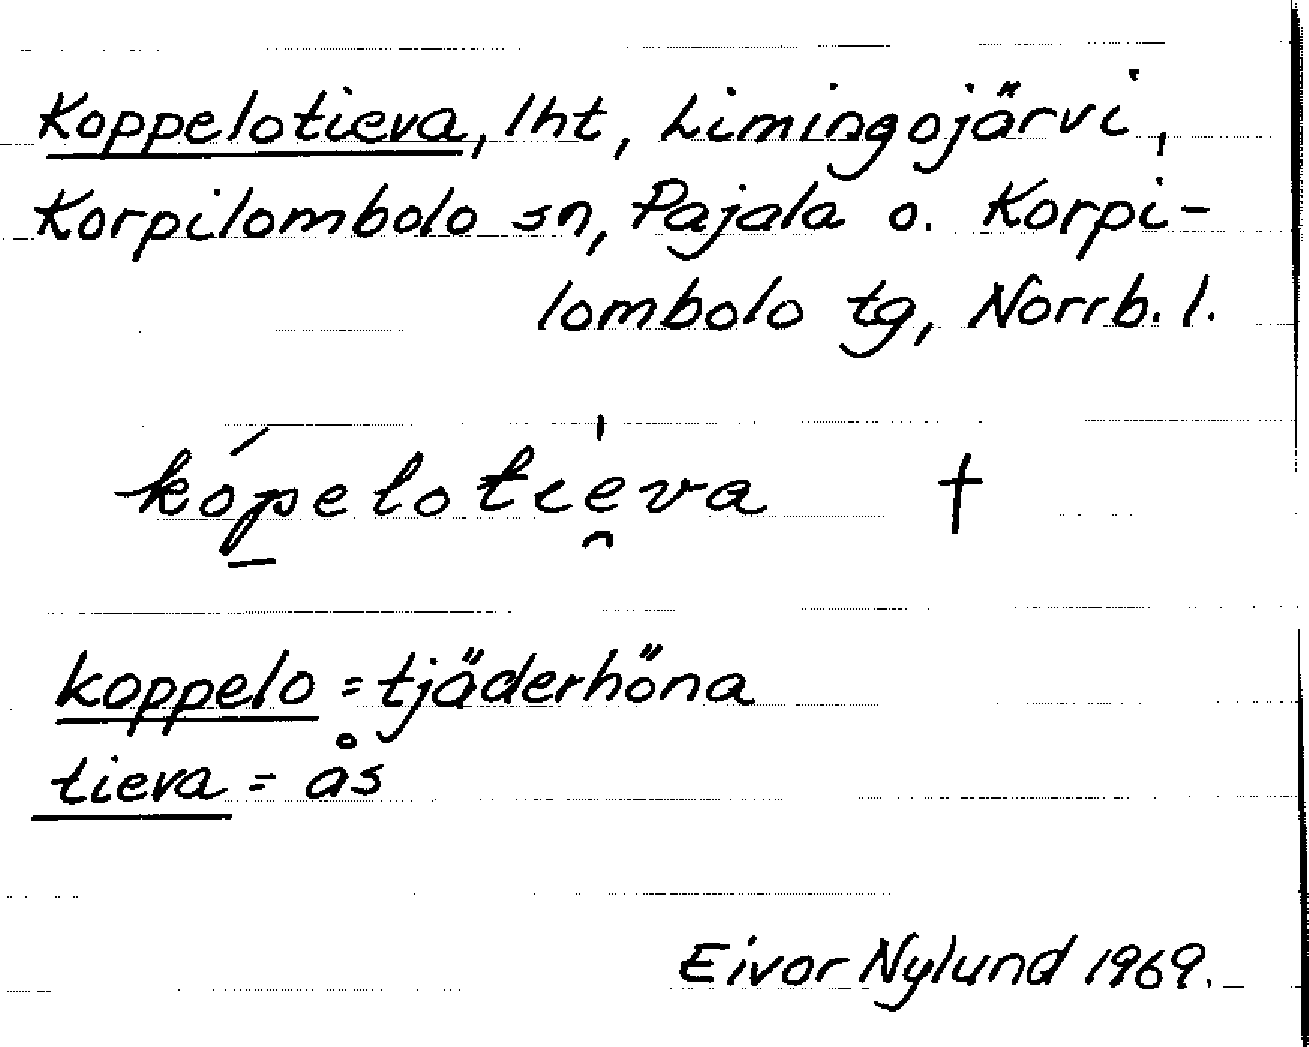 Koppelotieva, lht, Limingojärvi,
Korpilombolo sn, Pajala o. Korpi-
lombolo tg, Norrb. l.
kópelotìe̯va †
koppelo = tjäderhöna
tieva = ås
Eivor Nylund 1969.